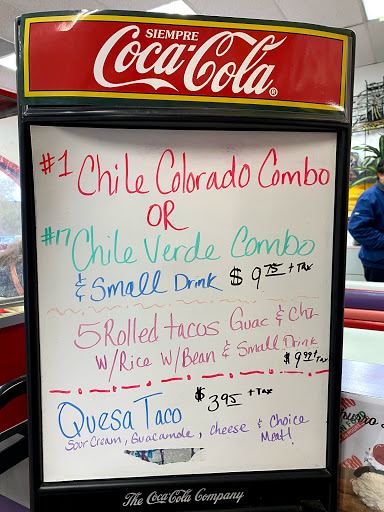 SIEMPRE
Coca-Cola
#1 Chile Colorado Combo
OR
#17 Chile Verde Combo
& Small Drink $9.75 + Tax
5 Rolled tacos Guac & Chz
W/Rice W/Bean & Small Drink
Quesa Taco $3.95 + Tax
Sour Cream, Guacamole, cheese & Choice
Meat!
The Coca-Cola Company